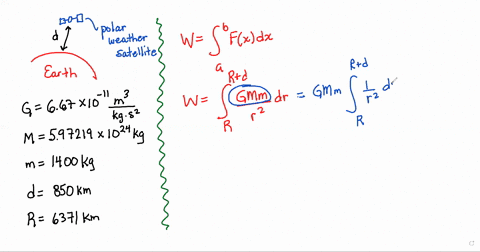 polar
weather
satellite
d
Earth
G = 6.67 × 10⁻¹¹ m³/kg·s²
M = 5.97219 × 10²⁴ kg
m = 1400 kg
d = 850 km
R = 6371 km
W = ∫ₐᵇ F(x) dx
W = ∫_R^{R+d} GMm/r² dr = GMm ∫_R^{R+d} 1/r² dr